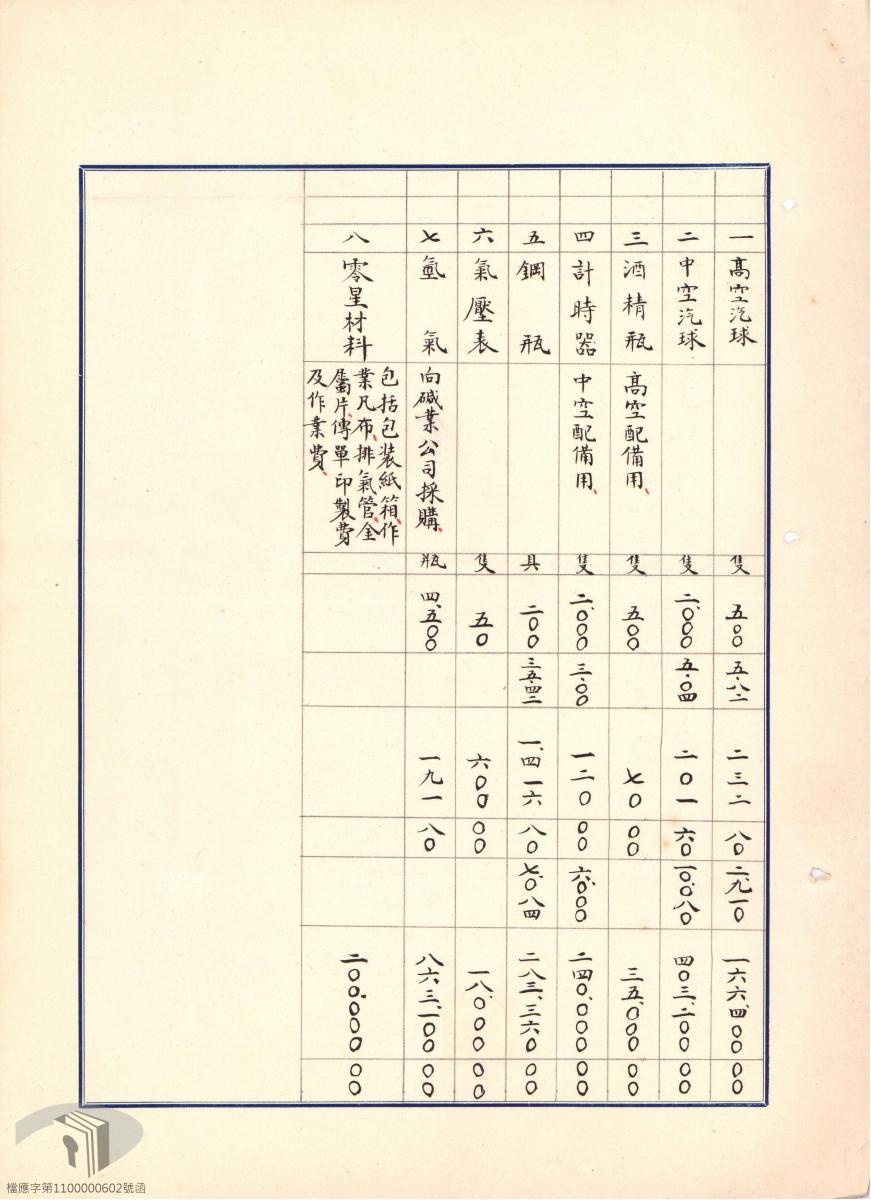 一 高空汽球 隻 五〇〇 五.八二 二三二 八〇 二、九一〇 一一六、四〇〇 〇〇
二 中空汽球 隻 二、〇〇〇 五.〇四 二〇一 六〇 一〇、〇八〇 四〇三、二〇〇 〇〇
三 酒精瓶 高空配備用、 隻 五〇〇 七〇 〇〇 三五、〇〇〇 〇〇
四 計時器 中空配備用、 隻 二、〇〇〇 三.〇〇 一二〇 〇〇 六、〇〇〇 二四〇、〇〇〇 〇〇
五 鋼瓶 具 二〇〇 三五.四二 一、四一六 八〇 七、〇八四 二八三、三六〇 〇〇
六 氣壓表 隻 五〇 六〇〇 〇〇 一八、〇〇〇 〇〇
七 氫氣 向碱業公司採購、 瓶 四、五〇〇 一九一 八〇 八六三、一〇〇 〇〇
八 零星材料
包括包裝紙箱、作
業凡布、排氣管、金
屬片、傳單印製費
及作業費、
二〇〇、〇〇〇 〇〇
檔應字第1100000602號函